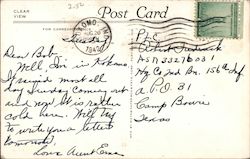 2.50
CLEAR
VIEW
Post Card
KOKOMO, IND.
1943
Tues.
Dear Bob,
Well I'm in Kokomo
I rained most all
day Sunday coming out
and now it is rather
cold here. Will try
to write you a letter
tomorrow.
Love Aunt Erma
Pvt.
Frederick
ASN 33276031
Hq Co 2nd Bn. 156th Inf
A.P.O. 31
Camp Bowie
Texas